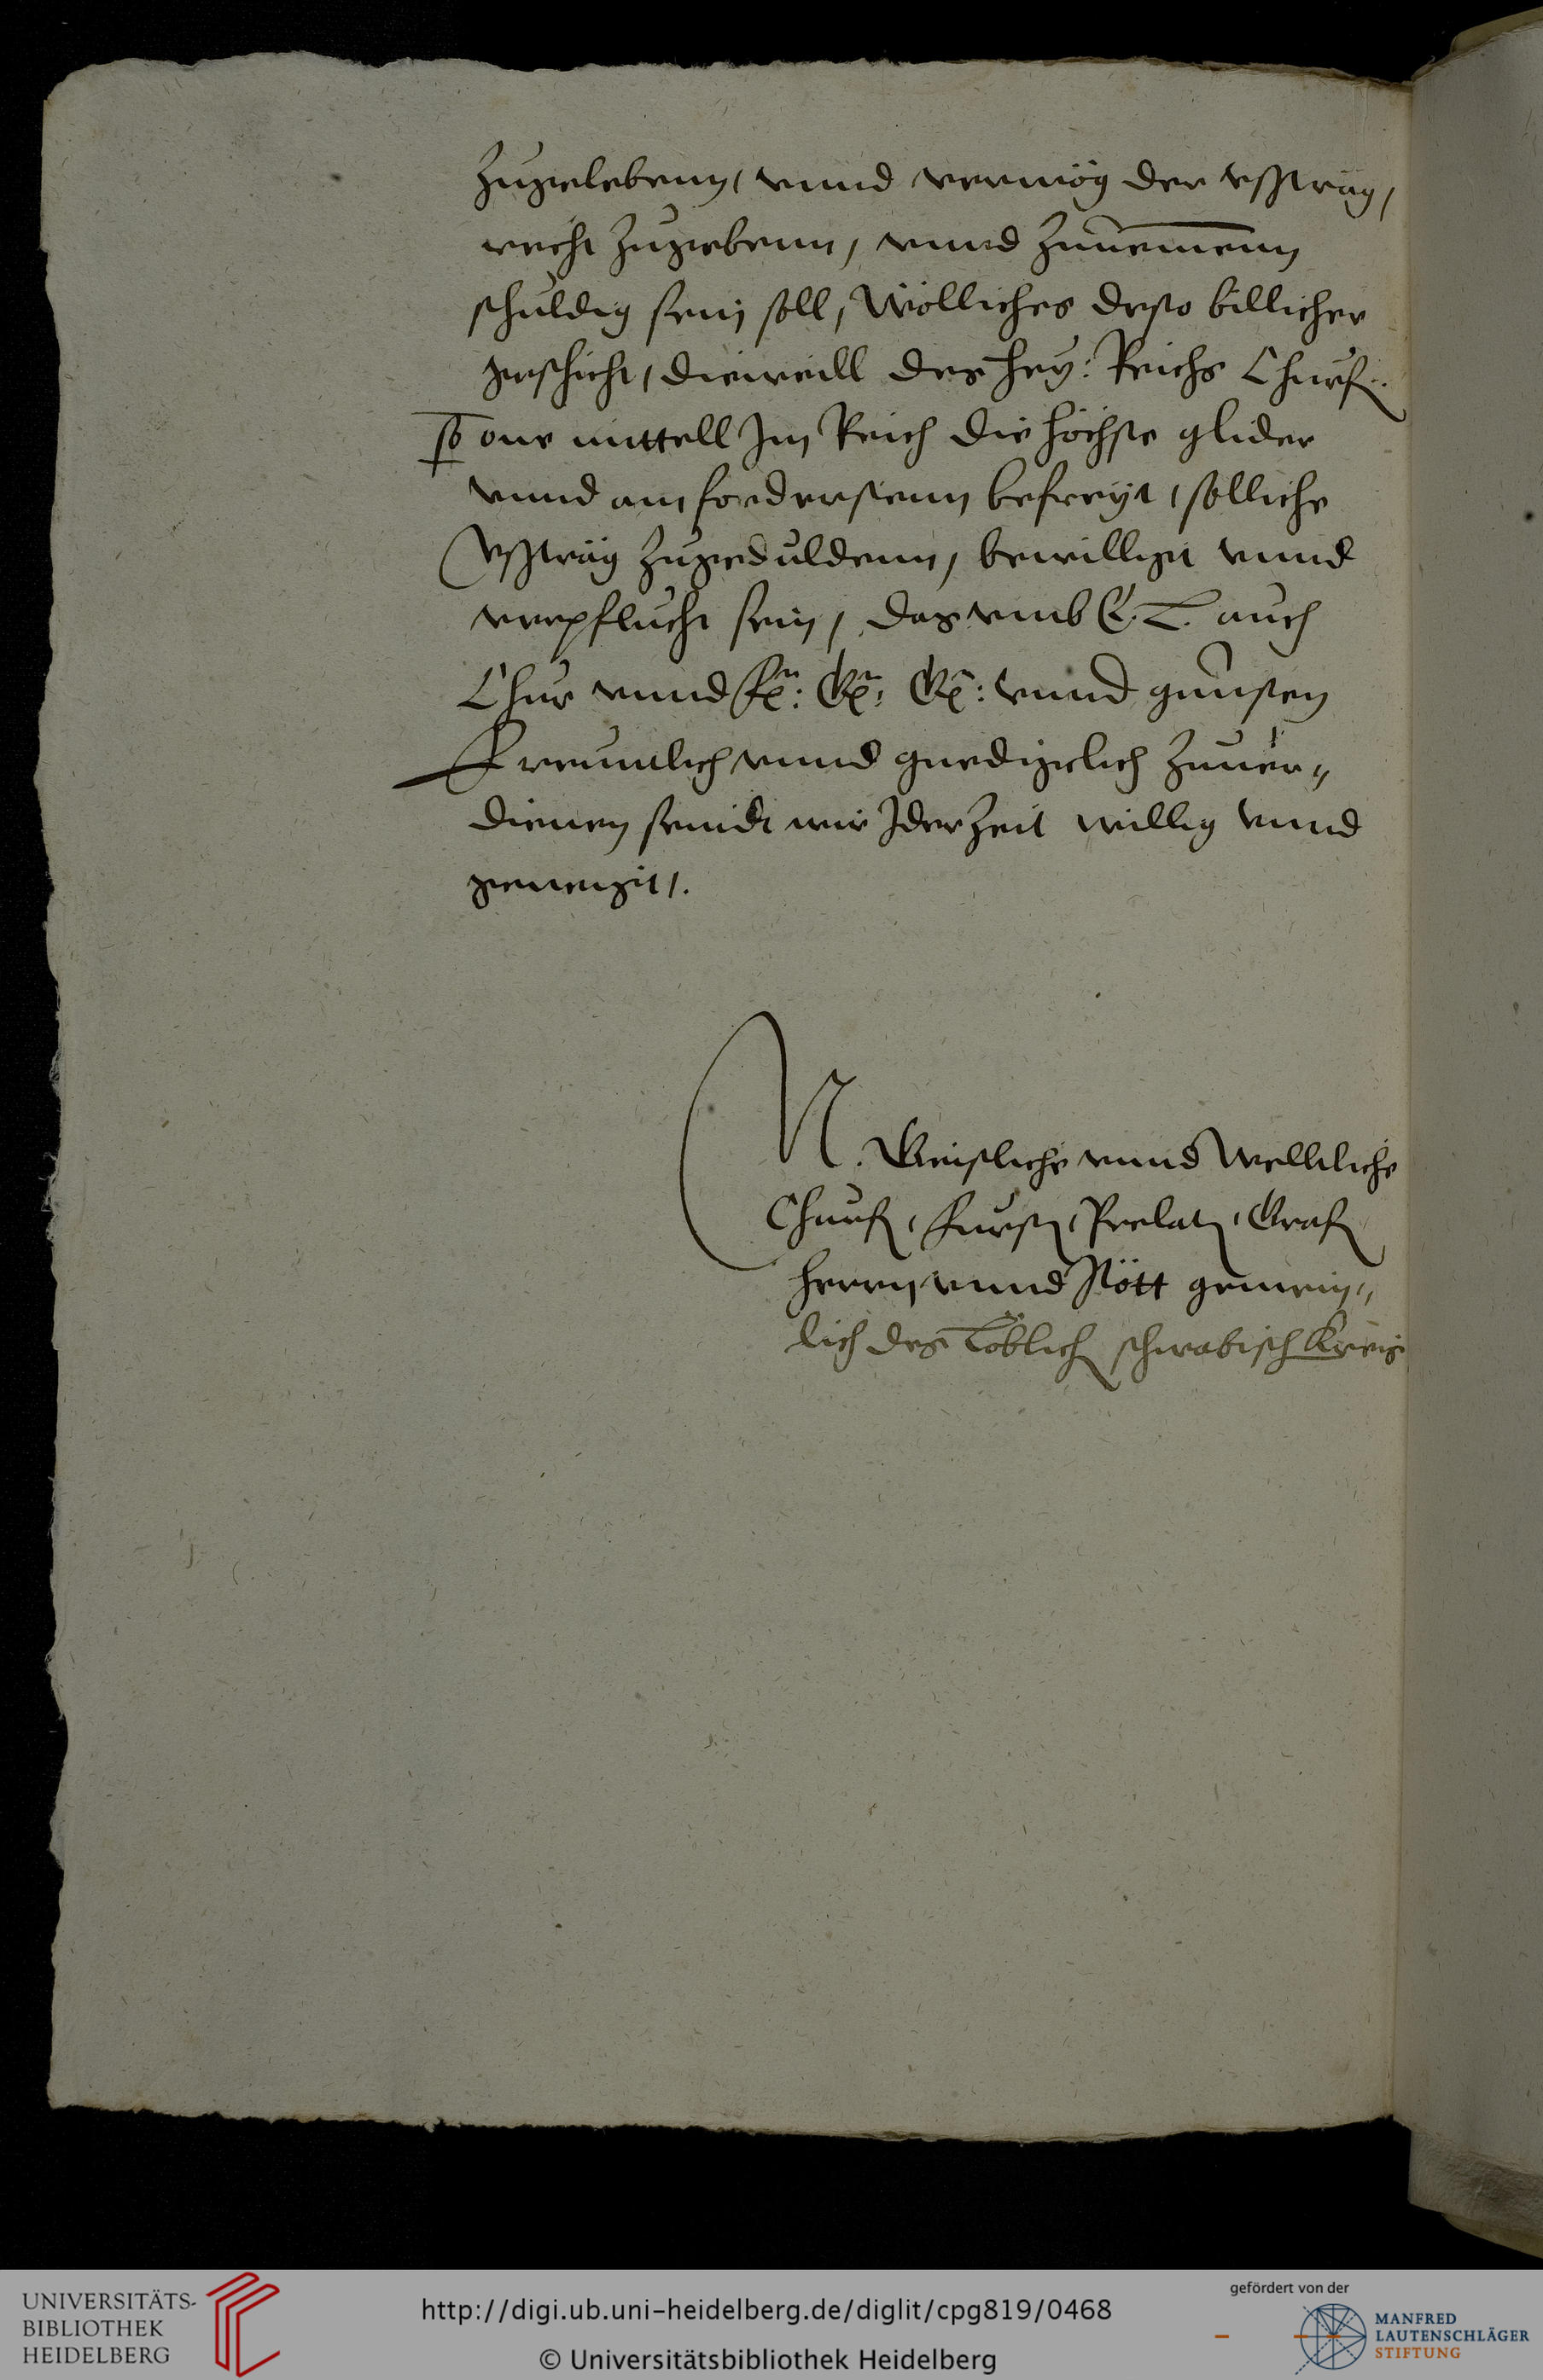 Zugelebenn, vnnd vermög der vsstrag,
recht Zugebenn, vnnd Zunemenn
schuldig sein soll, Wölliches desto billicher
geschicht, dieweill des hey: Reichs Churf.
so one mittell Im Reich die höchste glider
vnnd am fordersten befreyt, solliche
Vssträg Zugeduldenn, bewilligt vnnd
verpflücht sein, das vmb E. L. auch
Chur vnnd F: G: G: vnnd gunsten
Freuntlich vnnd gnediglich Zuuer„
dienen seindt wir Iderzeit willig vnnd
geneigt /.
N. Geistliche vnnd Welltliche
Churf, Furst, Prelat, Graf
herrn vnnd Stött gemein„
lich des Löblich schwabisch Kreis
UNIVERSITÄTS-
BIBLIOTHEK
HEIDELBERG
http://digi.ub.uni-heidelberg.de/diglit/cpg819/0468
© Universitätsbibliothek Heidelberg
gefördert von der
MANFRED
LAUTENSCHLÄGER
STIFTUNG